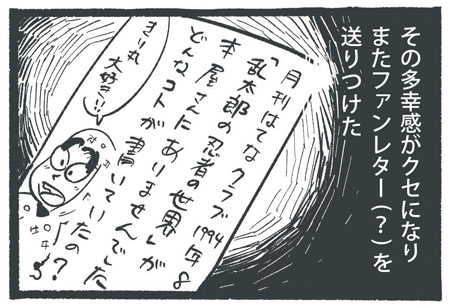 その多幸感がクセになり
またファンレター(?)を
送りつけた
月刊はてなクラブ1994年8
「乱太郎の忍者の世界」が
本屋さんにありませんでした
どんなコトが書いていたの?
きり丸
大好き!!